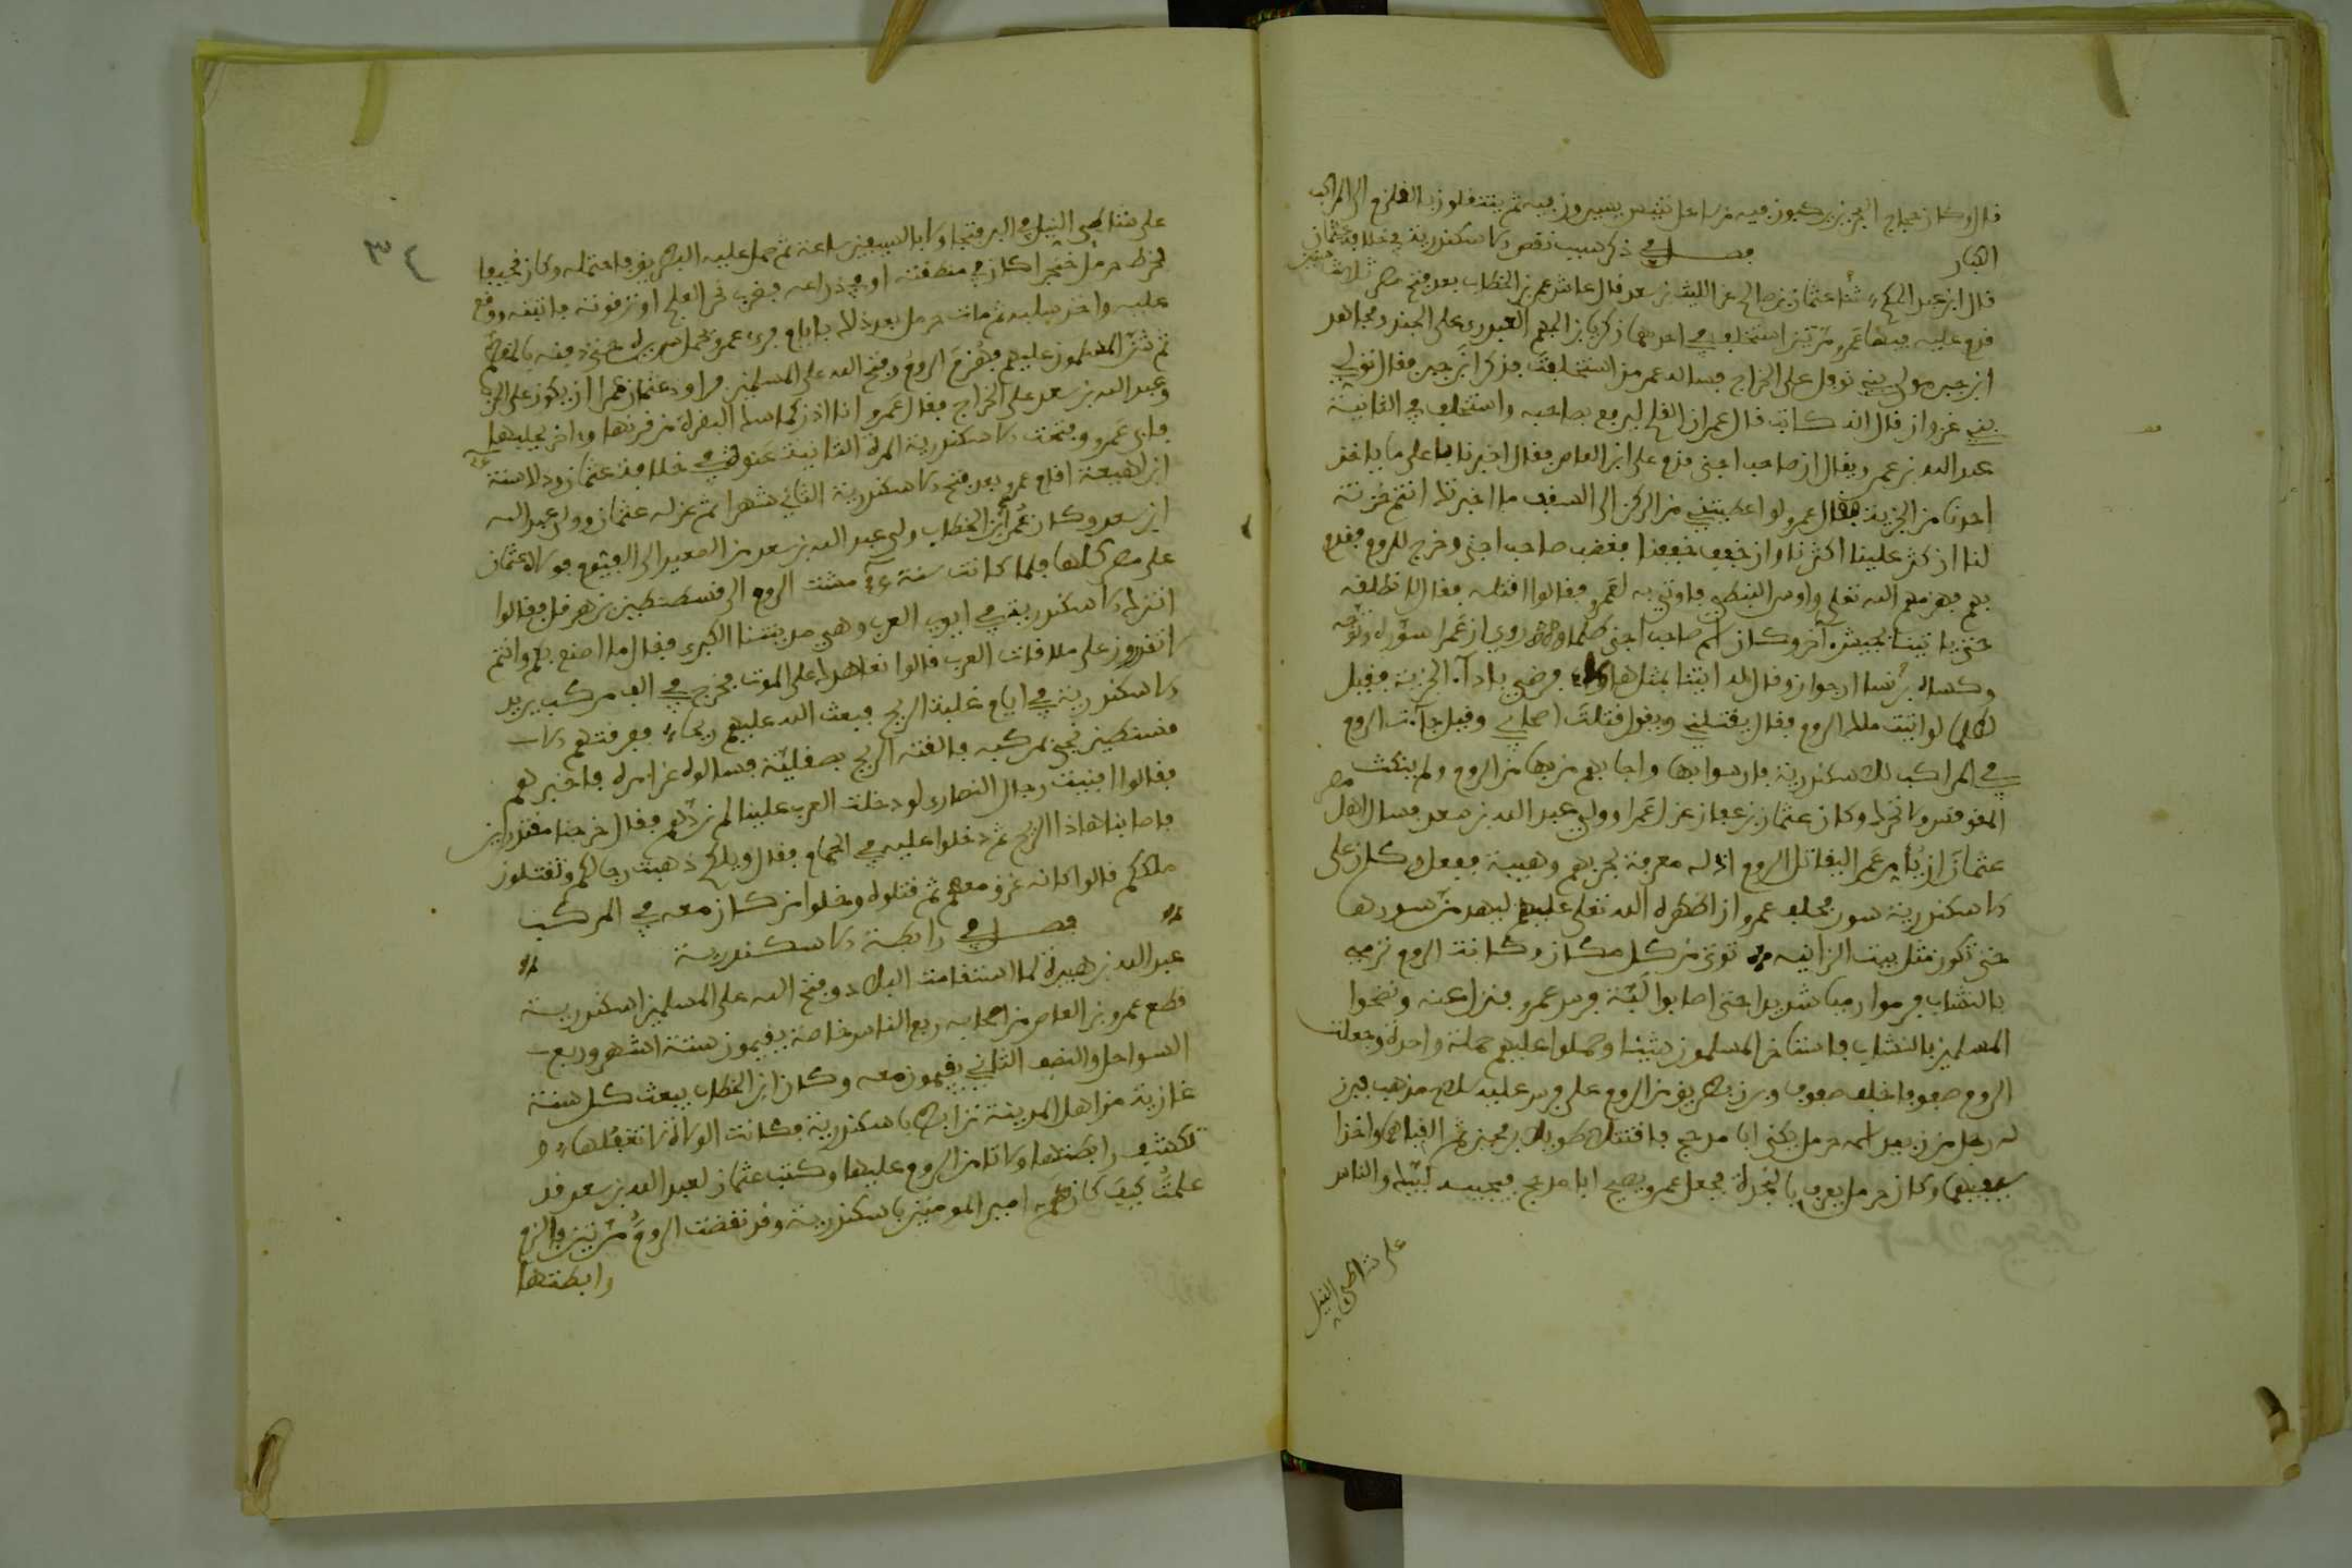 قال وكان حجاج البحر يركبون فيه من ساحل تنيس يسيرون فيه ثم ينتقلون بالقلزم الى المراكب
الكبار
فصل في ذكر سبب نقض الاسكندرية في خلافة عثمان
قال ابن عبد الحكم ثنا عثمان بن صالح عن الليث بن سعد قال عاش عمر بن الخطاب بعد فتح مصر ثلاث سنين
قدم عليه فيها عمرو مرتين استخلف في احدهما زكريا بن الجهم العبدري على الجند ومجاهد
ابن جبر مولى بني نوفل على الخراج فساله عمر من استخلفت فذكر ابن جبر فقال مولى
بني غزوان قال انه كاتب قال عمر ان القلم ليرفع صاحبه واستخلف في الثانية
عبد الله بن عمرو ويقال ان صاحب اخنى قدم على ابن العاص فقال اخبرنا بما على ما ياخذ
احدنا من الجزية فقال عمرو لو اعطيتني من الركن الى السقف ما اخبرتك انتم خزنة
لنا ان كثر علينا اكثرنا وان خفف خففنا فغضب صاحب اخنى وخرج للروم فقدم
بهم فهزمهم الله تعلى واوسر النبطي فاوتي به لعمرو فقالوا اقتله فقال لا فطلقه
حتى ياتينا بجيش آخر وكان اسم صاحب اخنى طلما روي ان عمرا سوره وتوجه
وكساه برنسا ارجوان وقال له ايتنا بمثل هاولاء فرضي باداء الجزية فقيل
لطلما لو اتيت ملك الروم فقال يقتلني ويقول قتلت اصحابي وقيل جاءت الروم
في المراكب للاسكندرية فارسوا بها واجابهم من بها من الروم ولم ينكث
المقوقس ولا تحرك وكان عثمان بن عفان عزل عمرا وولى عبد الله بن سعد فسال اهل مصر
عثمان ان يأمر عمرا ليقاتل الروم اذ له معرفة بحربهم وهيبة ففعل وكان على
الاسكندرية سور فحلف عمرو ان اظهره الله تعلى عليهم ليهدمن سورها
حتى تكون مثل بيت الزانية توتى من كل مكان وكانت الروم ترميه
بالنشاب فرموا رميا شديدا حتى اصابوا لبة فرس عمرو فنزل عنه ونضحوا
المسلمين بالنشاب فاستاخر المسلمون شيئا وحملوا عليهم حملة واحدة وجعلت
الروم صفوفا خلف صفوف وبرز بطريق من الروم على فرس عليه سلاح مذهب فبرز
له رجل من زبيد اسمه حومل يكنى ابا مدحج فاقتتلا طويلا برمحين ثم القياهما واخذا
سيفيهما وكان حومل يعرف بالنجدة فجعل عمرو يصيح ابا مدحج فيجيبه لبيك والناس
على شاطى النيل
٣٤
على شاطى النيل في البر فتجاولا بالسيفين ساعة ثم حمل عليه البطريق فاحتمله وكان نحيفا
فاخترط حومل خنجرا كان في منطقته او في ذراعه فضرب نحر العلج او ترقوته فاثبته ووقع
عليه واخذ سلبه ثم مات حومل بعد ذلك بايام فرئي عمرو يحمل سريره حتى دفنه بالمقطم
ثم شد المسلمون عليهم فهزم الروم وفتح الله على المسلمين فراود عثمان عمرا ان يكون على الحرب
وعبد الله بن سعد على الخراج فقال عمرو انا اذن كماسك البقرة من قرنها واخر يحلبها
فابى عمرو وفتحت الاسكندرية المرة الثانية عنوة في خلافة عثمان وذلك سنة
ابن لهيعة اقام عمرو بعد فتح الاسكندرية الثاني شهرا ثم عزله عثمان وولى عبد الله
ابن سعد وكان عمر ابن الخطاب ولى عبد الله بن سعد من الصعيد الى الفيوم فولاه عثمان
على مصر كلها فلما كانت سنة مشت الروم الى قسطنطين بن هرقل فقالوا
اتترك الاسكندرية في ايدي العرب وهي مدينتنا الكبرى فقال ما اصنع بكم وانتم
لا تقدرون على ملاقات العرب قالوا نعاهدك على الموت فخرج في الف مركب يريد
الاسكندرية في ايام غلبة الريح فبعث الله عليهم ريحا فغرقتهم الا
قسنطين نجى بمركبه فالقته الريح بصقلية فسالوه عن امره فاخبرهم
فقالوا افنيت رجال النصارى لو دخلت العرب علينا لم نردهم فقال خرجنا مقتدرين
فاصابنا هاذا الريح ثم دخلوا عليه في الحمام فقال ويلكم ذهبت رجالكم وتقتلون
ملككم قالوا كانه غرق معهم ثم قتلوه وخلوا من كان معه في المركب
فصل في رابطة الاسكندرية
عبد الله بن هبيرة لما استقامت البلاد وفتح الله على المسلمين اسكندرية
قطع عمرو بن العاص من اصحابه ربع الناس خاصة يقيمون ستة اشهر وربع
السواحل والنصف الثاني يقيمون معه وكان ابن الخطاب يبعث كل سنة
غازية من اهل المدينة ترابط باسكندرية فكانت الولاة لا تغفلها
تكثف رابطتها ولا تامن الروم عليها وكتب عثمان لعبد الله بن سعد قد
علمت كيف كان هم امير المومنين باسكندرية وقد نقضت الروم مرتين فالزم
رابطتها